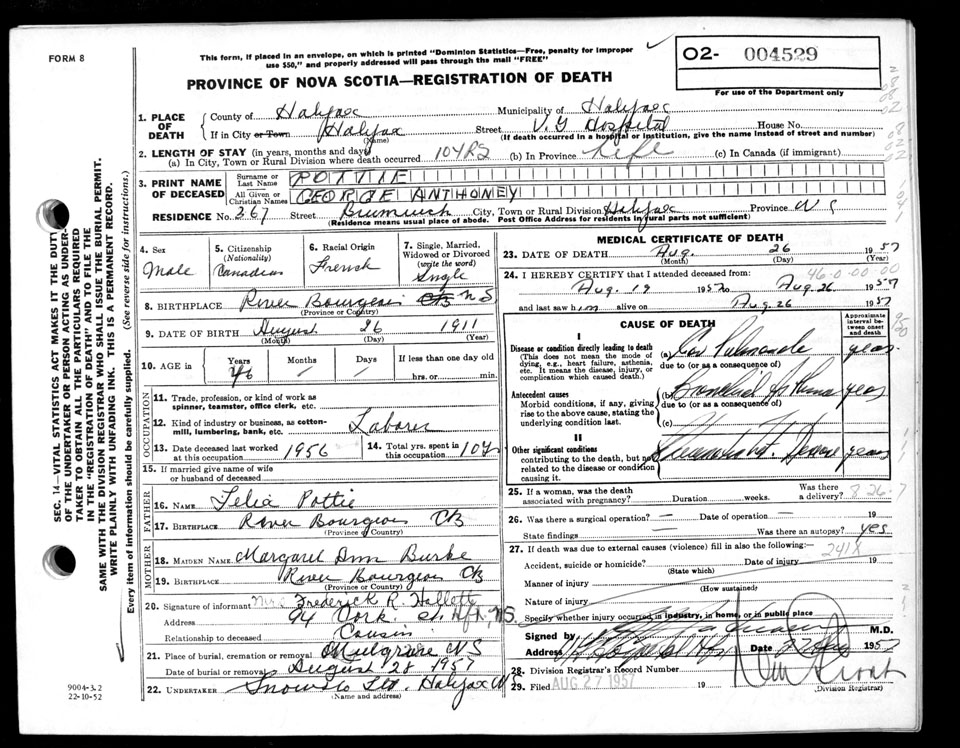 FORM 8
This form, if placed in an envelope, on which is printed "Dominion Statistics—Free, penalty for improper
use $50," and properly addressed will pass through the mail "FREE"
PROVINCE OF NOVA SCOTIA—REGISTRATION OF DEATH
O2- 004529
For use of the Department only
1. PLACE OF DEATH
County of Halifax Municipality of Halifax
If in City or Town Halifax Street V.G Hospital House No.
(Name) (If death occurred in a hospital or institution, give the name instead of street and number)
2. LENGTH OF STAY (in years, months and days)
(a) In City, Town or Rural Division where death occurred 10YRS (b) In Province Life (c) In Canada (if immigrant)
3. PRINT NAME OF DECEASED
Surname or Last Name POTTIE
All Given or Christian Names GEORGE ANTHONEY
RESIDENCE No 267 Street City, Town or Rural Division Halifax Province N S
(Residence means usual place of abode. Post Office Address for residents in rural parts not sufficient)
4. Sex Male
5. Citizenship (Nationality) Canadian
6. Racial Origin French
7. Single, Married, Widowed or Divorced (write the word) Single
8. BIRTHPLACE River Bourgeois CB N S
(Province or Country)
9. DATE OF BIRTH August 26 1911
(Month) (Day) (Year)
10. AGE in Years 46 Months Days If less than one day old
hrs. or min.
OCCUPATION
11. Trade, profession, or kind of work as
spinner, teamster, office clerk, etc.
12. Kind of industry or business, as cotton-
mill, lumbering, bank, etc. Laborer
13. Date deceased last worked at this occupation 1956
14. Total yrs. spent in this occupation 10Y
15. If married give name of wife
or husband of deceased
FATHER
16. NAME Pottie
17. BIRTHPLACE River Bourgeois CB
(Province or Country)
MOTHER
18. MAIDEN NAME Margaret Ann Burke
19. BIRTHPLACE River Bourgeois CB
(Province or Country)
20. Signature of informant Mrs Frederick R
Address 94 York St. Hfx. N.S.
Relationship to deceased Cousin
21. Place of burial, cremation or removal Mulgrave N S
Date of burial or removal August 28 1957
22. UNDERTAKER Snow & Co Ltd. Halifax N
(Name and address)
MEDICAL CERTIFICATE OF DEATH
23. DATE OF DEATH Aug. 26 1957
(Month) (Day) (Year)
46-0-00-00
24. I HEREBY CERTIFY that I attended deceased from:
Aug. 19 1957 to Aug. 26 1957
and last saw him alive on Aug. 26 1957
CAUSE OF DEATH
Approximate interval between onset and death
I
Disease or condition directly leading to death
(This does not mean the mode of
dying, e.g., heart failure, asthenia,
etc. It means the disease, injury, or
complication which caused death.)
(a) Cor Pulmonale years.
due to (or as a consequence of)
Antecedent causes
Morbid conditions, if any, giving
rise to the above cause, stating the
underlying condition last.
(b) Bronchial Asthma years
due to (or as a consequence of)
(c)
II
Other significant conditions
contributing to the death, but not
related to the disease or condition
causing it.
Disease years
25. If a woman, was the death associated with pregnancy? Duration weeks. Was there a delivery? 8.26.7
26. Was there a surgical operation? — Date of operation — 19
State findings Was there an autopsy? yes
27. If death was due to external causes (violence) fill in also the following:—
2418
Accident, suicide or homicide? Date of injury 19
(State which)
Manner of injury
(How sustained)
Nature of injury
Specify whether injury occurred in industry, in home, or in public place
Signed by M.D.
Address Date 27 1957
28. Division Registrar's Record Number
29. Filed AUG 27 1957 19
(Division Registrar)
SEC. 14—VITAL STATISTICS ACT MAKES IT THE DUTY
OF THE UNDERTAKER OR PERSON ACTING AS UNDER-
TAKER TO OBTAIN ALL THE PARTICULARS REQUIRED
IN THE "REGISTRATION OF DEATH" AND TO FILE THE
SAME WITH THE DIVISION REGISTRAR WHO SHALL ISSUE THE BURIAL PERMIT.
WRITE PLAINLY WITH UNFADING INK. THIS IS A PERMANENT RECORD.
Every item of information should be carefully supplied. (See reverse side for instructions.)
9004-3.2
22-10-52